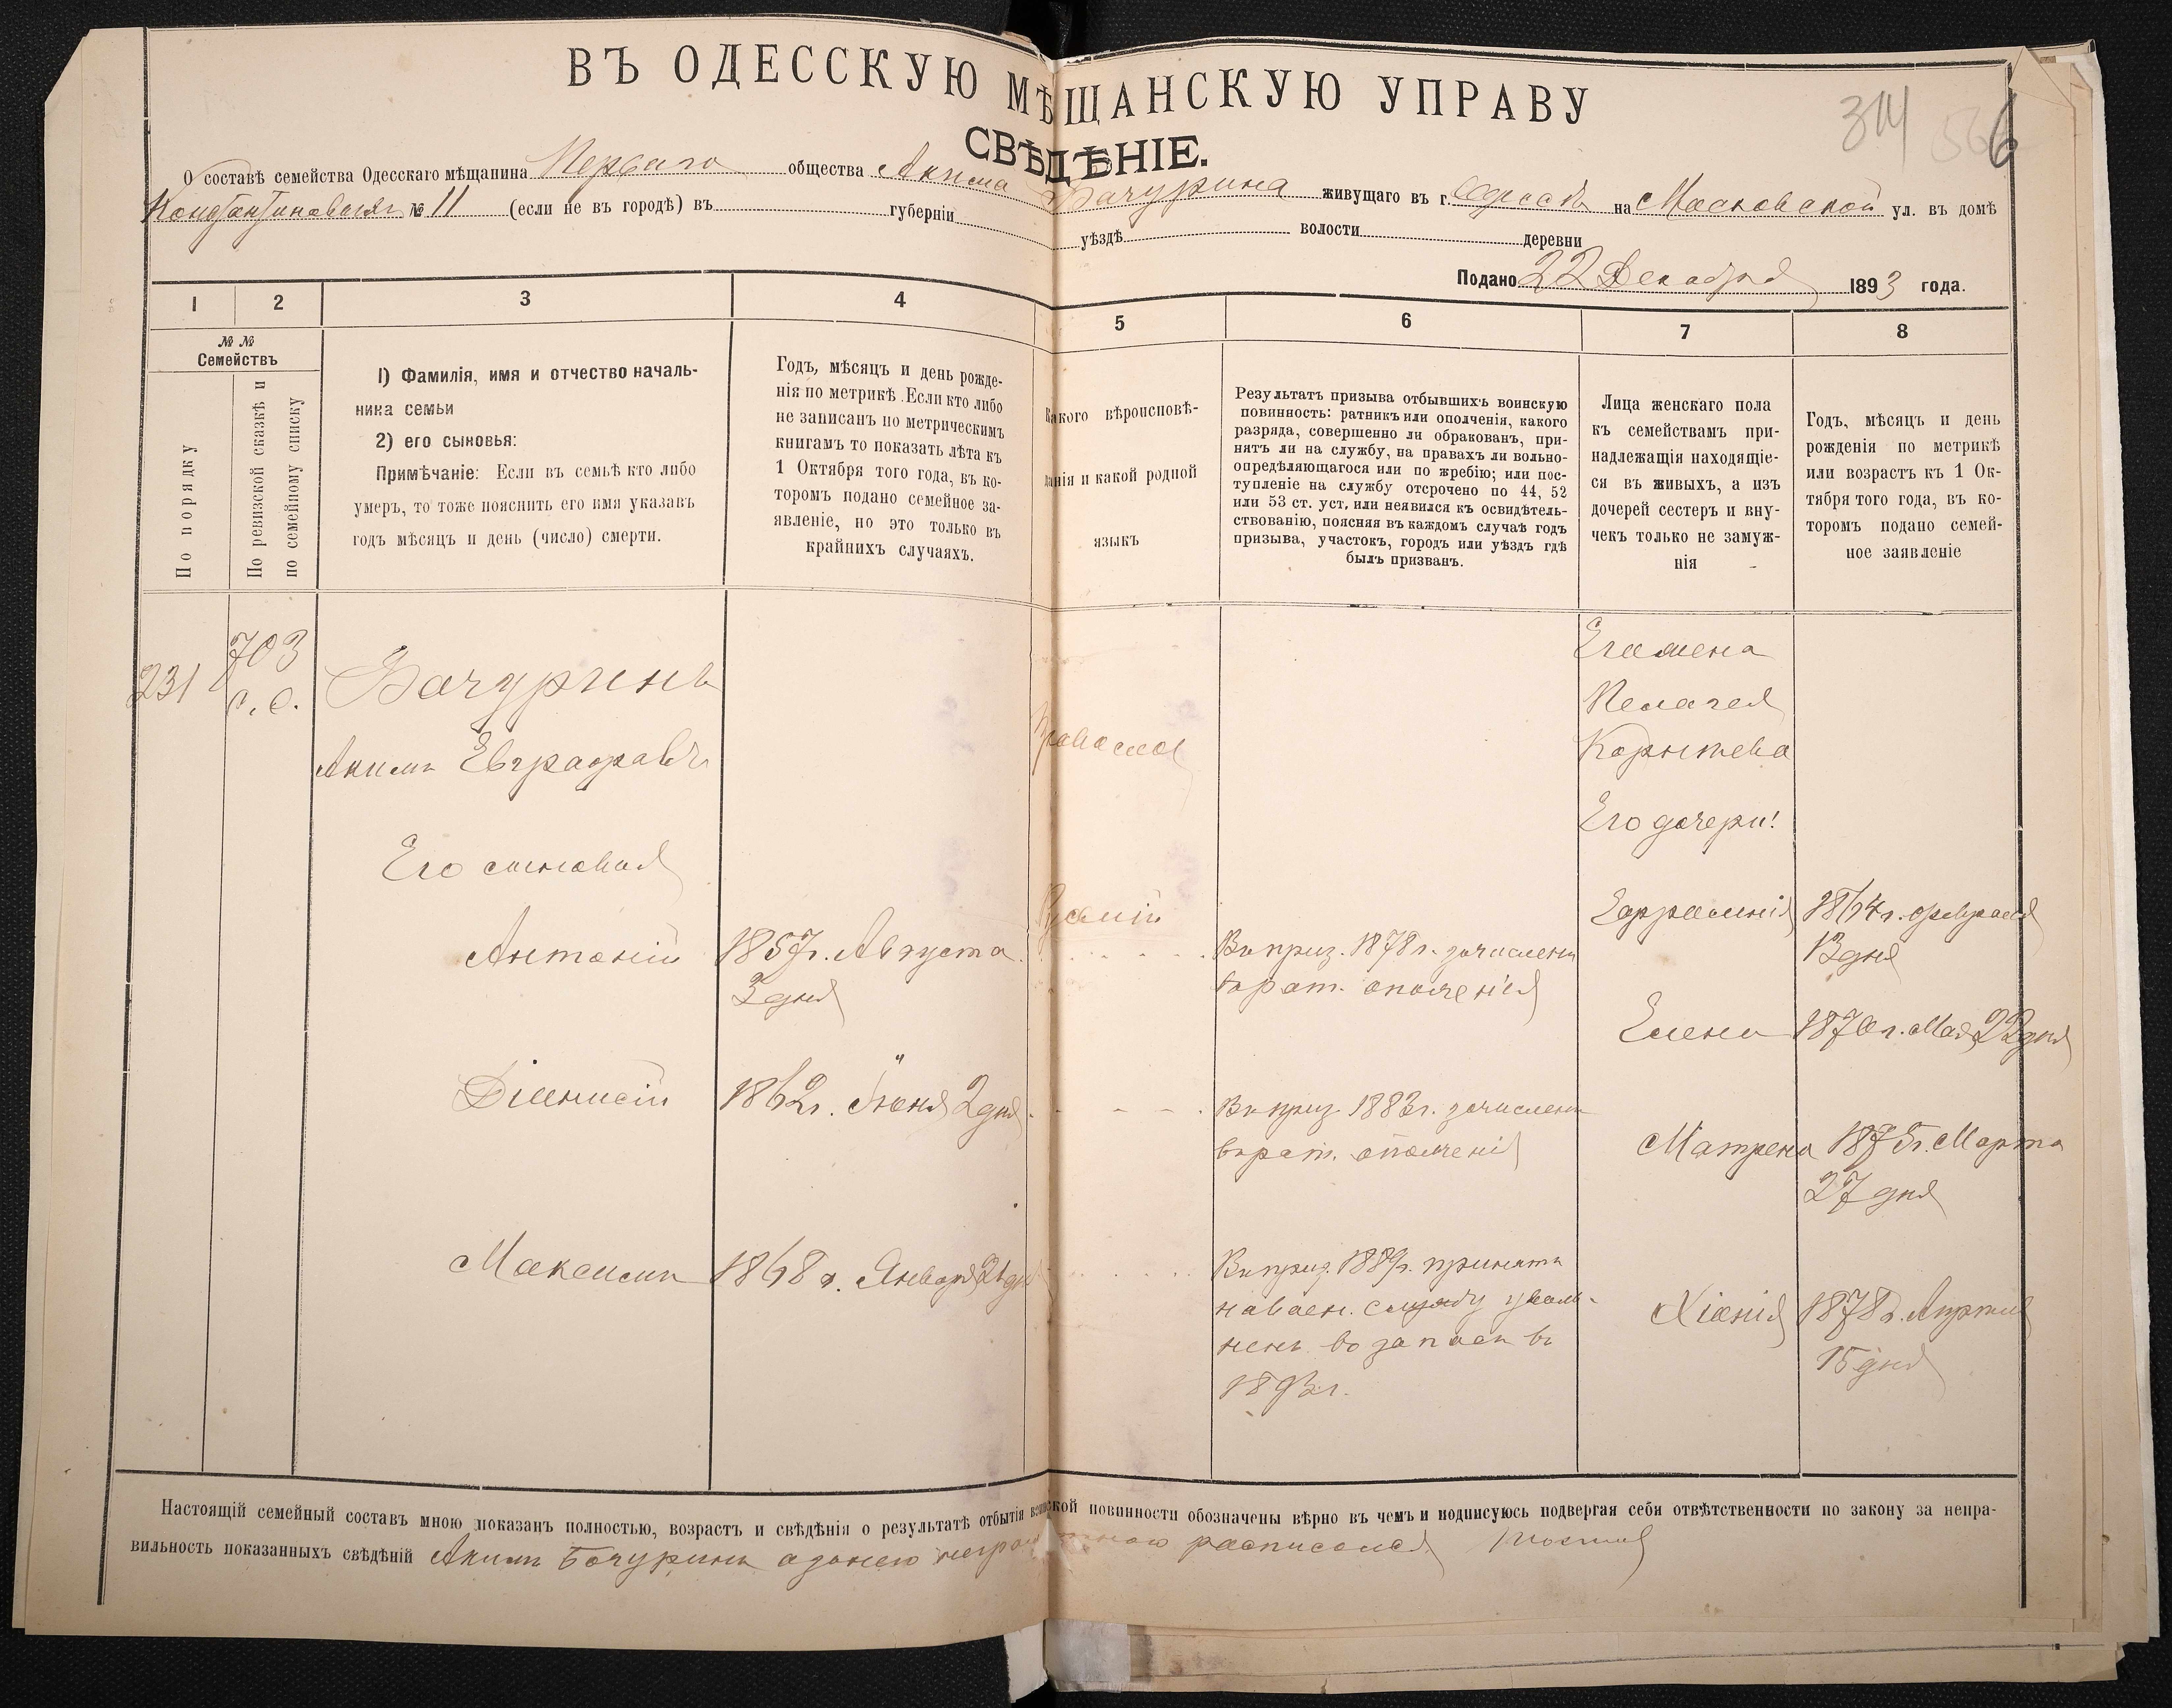 ВЪ ОДЕССКУЮ МѢЩАНСКУЮ УПРАВУ
314
6
СВѢДѢНІЕ.
О составѣ семейства Одесскаго мѣщанина Перваго общества Акима Бачурина живущаго въ г. Одессѣ на Московской ул. въ домѣ
№ 11 (если не въ городѣ) въ губерніи уѣздѣ волости деревни
Подано 22 Декабря 1893 года.
1 2 3 4 5 6 7 8
№ №
Семействъ
По порядку
По ревизской сказкѣ и
по семейному списку
1) Фамилія, имя и отчество началь-
ника семьи
2) его сыновья:
Примѣчаніе: Если въ семьѣ кто либо
умеръ, то тоже пояснить его имя указавъ
годъ мѣсяцъ и день (число) смерти.
Годъ, мѣсяцъ и день рожде-
нія по метрикѣ. Если кто либо
не записанъ по метрическимъ
книгамъ то показать лѣта къ
1 Октября того года, въ ко-
торомъ подано семейное за-
явленіе, но это только въ
крайнихъ случаяхъ.
Какого вѣроисповѣ-
данія и какой родной
языкъ
Результатъ призыва отбывшихъ воинскую
повинность: ратникъ или ополченія, какого
разряда, совершенно ли обракованъ, при-
нятъ ли на службу, на правахъ ли вольно-
опредѣляющагося или по жребію; или пос-
тупленіе на службу отсрочено по 44, 52
или 53 ст. уст. или неявился къ освидѣтель-
ствованію, поясняя въ каждомъ случаѣ годъ
призыва, участокъ, городъ или уѣздъ гдѣ
былъ призванъ.
Лица женскаго пола
къ семействамъ при-
надлежащія находящіе-
ся въ живыхъ, а изъ
дочерей сестеръ и вну-
чекъ только не замуж-
нія
Годъ, мѣсяцъ и день
рожденія по метрикѣ
или возрастъ къ 1 Ок-
тября того года, въ ко-
торомъ подано семей-
ное заявленіе
231
703
с. с.
Бачуринъ
Акимъ Евграфовъ
Его сыновья
Антоній
1857г. Августа
3 дня
Діонисій
1862г. Іюня 2 дня
Максимъ
1868 г. Января 21 дня
Православ
Рускій
Въ приз. 1878г. зачисленъ
въ рат. ополченія
Въ приз. 1883г. зачисленъ
въ рат. ополченія
Въ приз. 1889г. принятъ
на воен. службу уволь-
ненъ въ запасъ въ
1893г.
Его жена
Пелагея
Его дочери:
Евфросинія
1864г. февраля
13 дня
Елена
1870г. Мая 22 дня
Матрена
1875г. Марта
27 дня
Хіонія
1878г. Апрѣля
15 дня
Настоящій семейный составъ мною показанъ полностью, возрастъ и свѣдѣнія о результатѣ отбытія воинской повинности обозначены вѣрно въ чемъ и подписуюсь подвергая себя отвѣтственности по закону за непра-
вильность показанныхъ свѣдѣній Акимъ Бочуринъ а занего неграмотнаго расписался